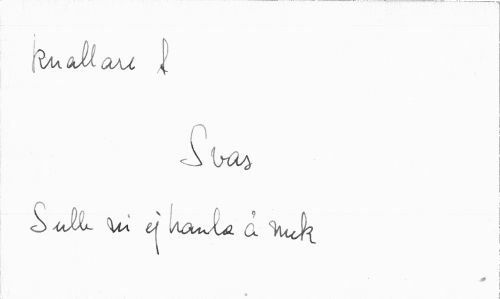 knallare f
Svas
Sulle ni ej hanla å mek